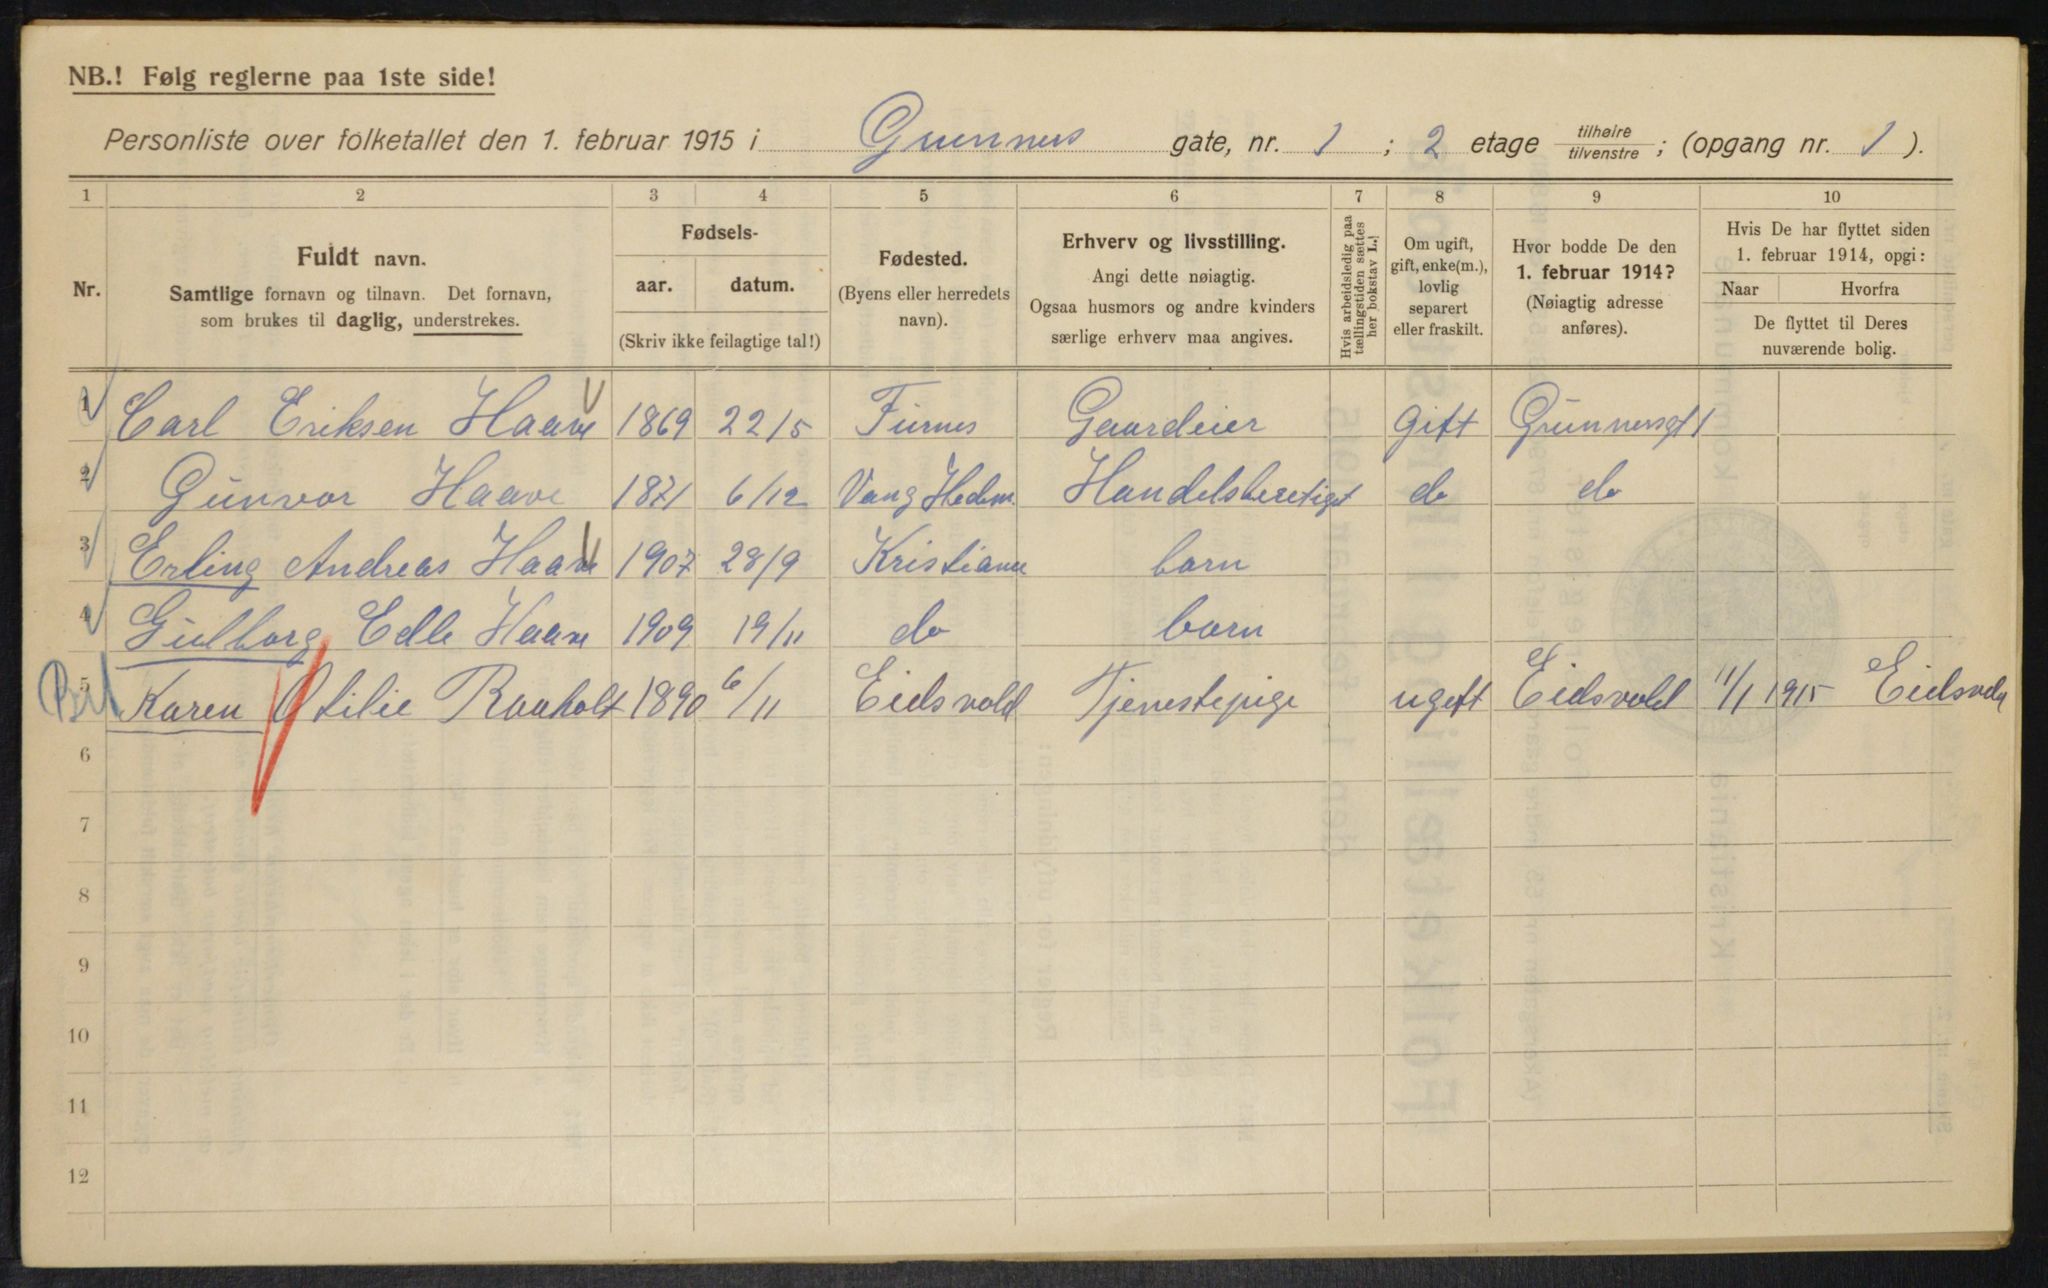 NB.! Følg reglerne paa 1ste side!
Personliste over folketallet den 1. februar 1915 i Grunners gate, nr. 1; 2 etage tilhøire / tilvenstre; (opgang nr. 1).
1 2 3 4 5 6 7 8 9 10
Nr. Fuldt navn. Samtlige fornavn og tilnavn. Det fornavn, som brukes til daglig, understrekes.
Fødsels- aar. datum. (Skriv ikke feilagtige tal!)
Fødested. (Byens eller herredets navn).
Erhverv og livsstilling. Angi dette nøiagtig. Ogsaa husmors og andre kvinders særlige erhverv maa angives.
Hvis arbeidsledig paa tællingstiden sættes her bokstav L.!
Om ugift, gift, enke(m.), lovlig separert eller fraskilt.
Hvor bodde De den 1. februar 1914? (Nøiagtig adresse anføres).
Hvis De har flyttet siden 1. februar 1914, opgi: Naar Hvorfra De flyttet til Deres nuværende bolig.
1 Carl Eriksen Haave 1869 22/5 Furnes Gaardeier Gift Grünnersgt 1
2 Gunvor Haave 1871 6/12 Vang Hedm. Handelsberetiget do do
3 Erling Andreas Haave 1907 28/9 Kristiania barn
4 Gulborg Edle Haave 1909 19/11 do barn
5 Karen Otilie Raaholt 1890 6/11 Eidsvold Tjenestepige ugift Eidsvold 11/1 1915 Eidsvold
6
7
8
9
10
11
12